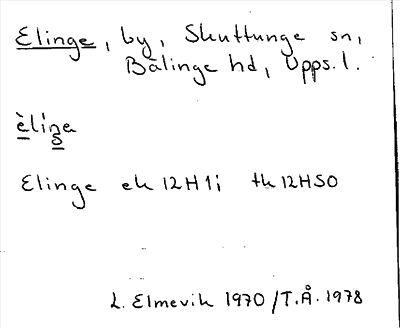 Elinge, by, Skuttunge sn,
Bälinge hd, Upps. l.
èliŋa
Elinge ek 12H1i tk 12HSO
L. Elmevik 1970/T.Å. 1978